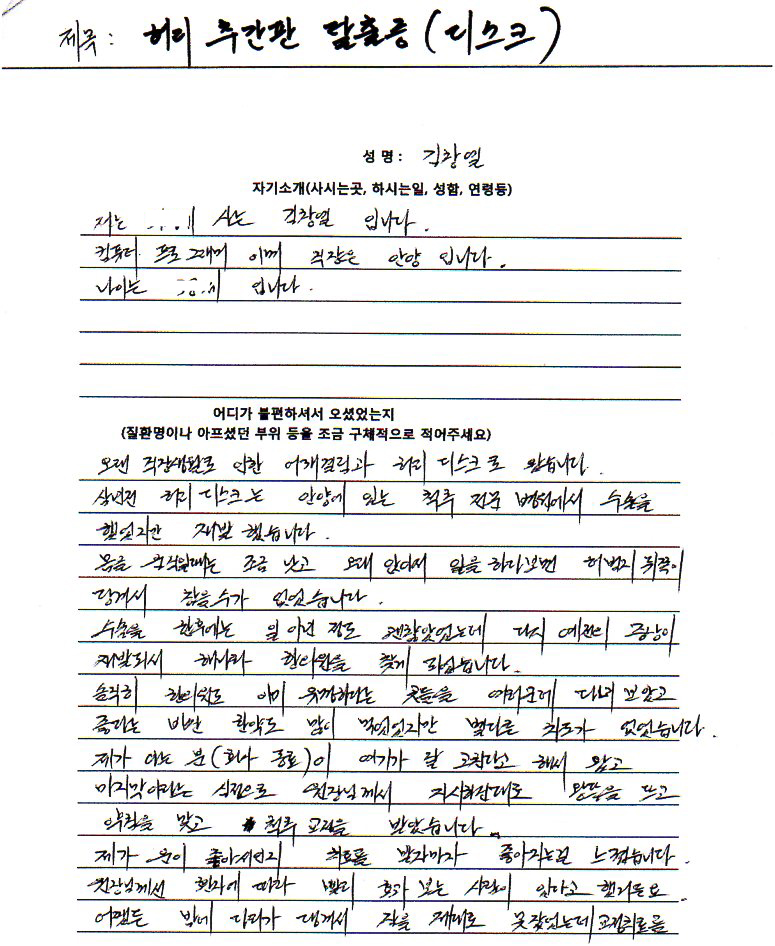 제목: 허리 추간판 탈출증(디스크)
성 명 : 김창열
자기소개(사시는곳, 하시는일, 성함, 연령등)
저는 사는 김창열 입니다.
컴퓨터 프로그래머 이며 직장은 안양 입니다.
나이는 입니다.
어디가 불편하셔서 오셨었는지
(질환명이나 아프셨던 부위 등을 조금 구체적으로 적어주세요)
오랜 직장생활로 인한 어깨결림과 허리 디스크로 왔습니다.
삼년전 허리 디스크는 안양에 있는 척추 전문 병원에서 수술을
했었지만 재발 했습니다.
몸을 움직일때는 조금 낫고 오래 앉아서 일을 하다보면 허벅지 뒤쪽이
당겨서 참을수가 없었습니다.
수술을 한후에는 일 이년 정도 괜찮았었는데 다시 예전의 증상이
재발되서 해나라 한의원을 찾게 되었습니다.
솔직히 한의원도 이미 유명하다는 곳들을 여러군데 다녀 보았고
좋다는 비싼 한약도 많이 먹었었지만 별다른 차도가 없었습니다.
제가 아는 분(회사 동료)이 여기가 잘 고친다고 해서 왔고
마지막이라는 심정으로 원장님께서 지시하신대로 한약을 먹고
약침을 맞고 척추 교정을 받았습니다.
제가 운이 좋아서인지 치료를 받자마자 좋아지는걸 느꼈습니다.
원장님께선 환자에 따라 빨리 효과 보는 사람이 있다고 했거든요.
어쨌든 밤에 다리가 댕겨서 잠을 제대로 못잤었는데 교정치료를